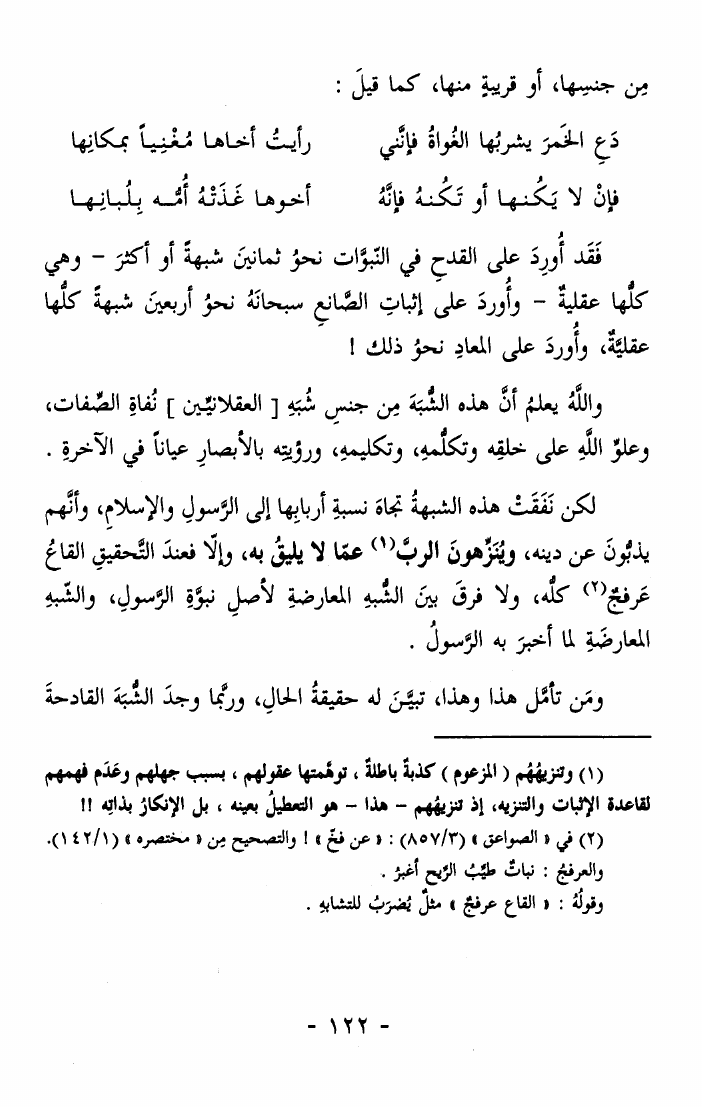 مِن جنسِها، أو قريبةٍ منها، كما قيلَ :
دَعِ الخَمرَ يشربُها الغُواةُ فإنَّني رأيتُ أخاها مُغْنِياً بمكانِها
فإنْ لا يَكُنها أو تَكُنهُ فإنَّهُ أخوها غَذَتْهُ أُمُّه بِلُبانِها
فَقَد أُورِدَ على القدحِ في النّبوَّات نحوُ ثمانينَ شبهةً أو أكثرَ – وهي
كلُّها عقليةٌ – وأُوردَ على إثباتِ الصَّانعِ سبحانَهُ نحوُ أربعينَ شبهةً كلُّها
عقليَّةٌ، وأُوردَ على المعادِ نحوُ ذلك !
واللَّهُ يعلمُ أنَّ هذه الشُّبَهَ مِن جنسِ شُبَهِ [ العقلانيِّين ] نُفاةِ الصِّفات،
وعلوِّ اللَّهِ على خلقِه وتكلُّمهِ، وتكليمهِ، ورؤيتِه بالأبصارِ عياناً في الآخرةِ .
لكن نَفَقَتْ هذه الشبهةُ تجاهَ نسبةِ أربابِها إلى الرَّسولِ والإسلامِ، وأنَّهم
يذبُّونَ عن دينه، ويُنَزِّهونَ الربَّ(١) عمّا لا يليقُ به، وإلّا فعندَ التَّحقيقِ القاعُ
عَرفجٌ(٢) كلُّه، ولا فرقَ بينَ الشُّبهِ المعارضةِ لأصلِ نبوَّةِ الرَّسولِ، والشّبهِ
المعارضَةِ لما أخبرَ به الرَّسولُ .
ومَن تأمَّل هذا وهذا، تبيَّنَ له حقيقةُ الحالِ، وربَّما وجدَ الشُّبَهَ القادحةَ
(١) وتنزيهُهُم ( المزعوم ) كذبةٌ باطلةٌ ، توهَّمتها عقولهم ، بسبب جهلهم وعَدَم فهمهم
لقاعدة الإثبات والتنزيه، إذ تنزيهُهم – هذا – هو التعطيلُ بعينه ، بل الإنكارُ بذاتِه !!
(٢) في « الصواعق » (٨٥٧/٣) : « عن فخّ » ! والتصحيح مِن « مختصره » (١٤٢/١).
والعرفجُ : نباتٌ طيِّبُ الرِّيح أغبرُ .
وقولُهُ : « القاع عرفجٌ » مثلٌ يُضرَبُ للتشابهِ .
- ١٢٢ -